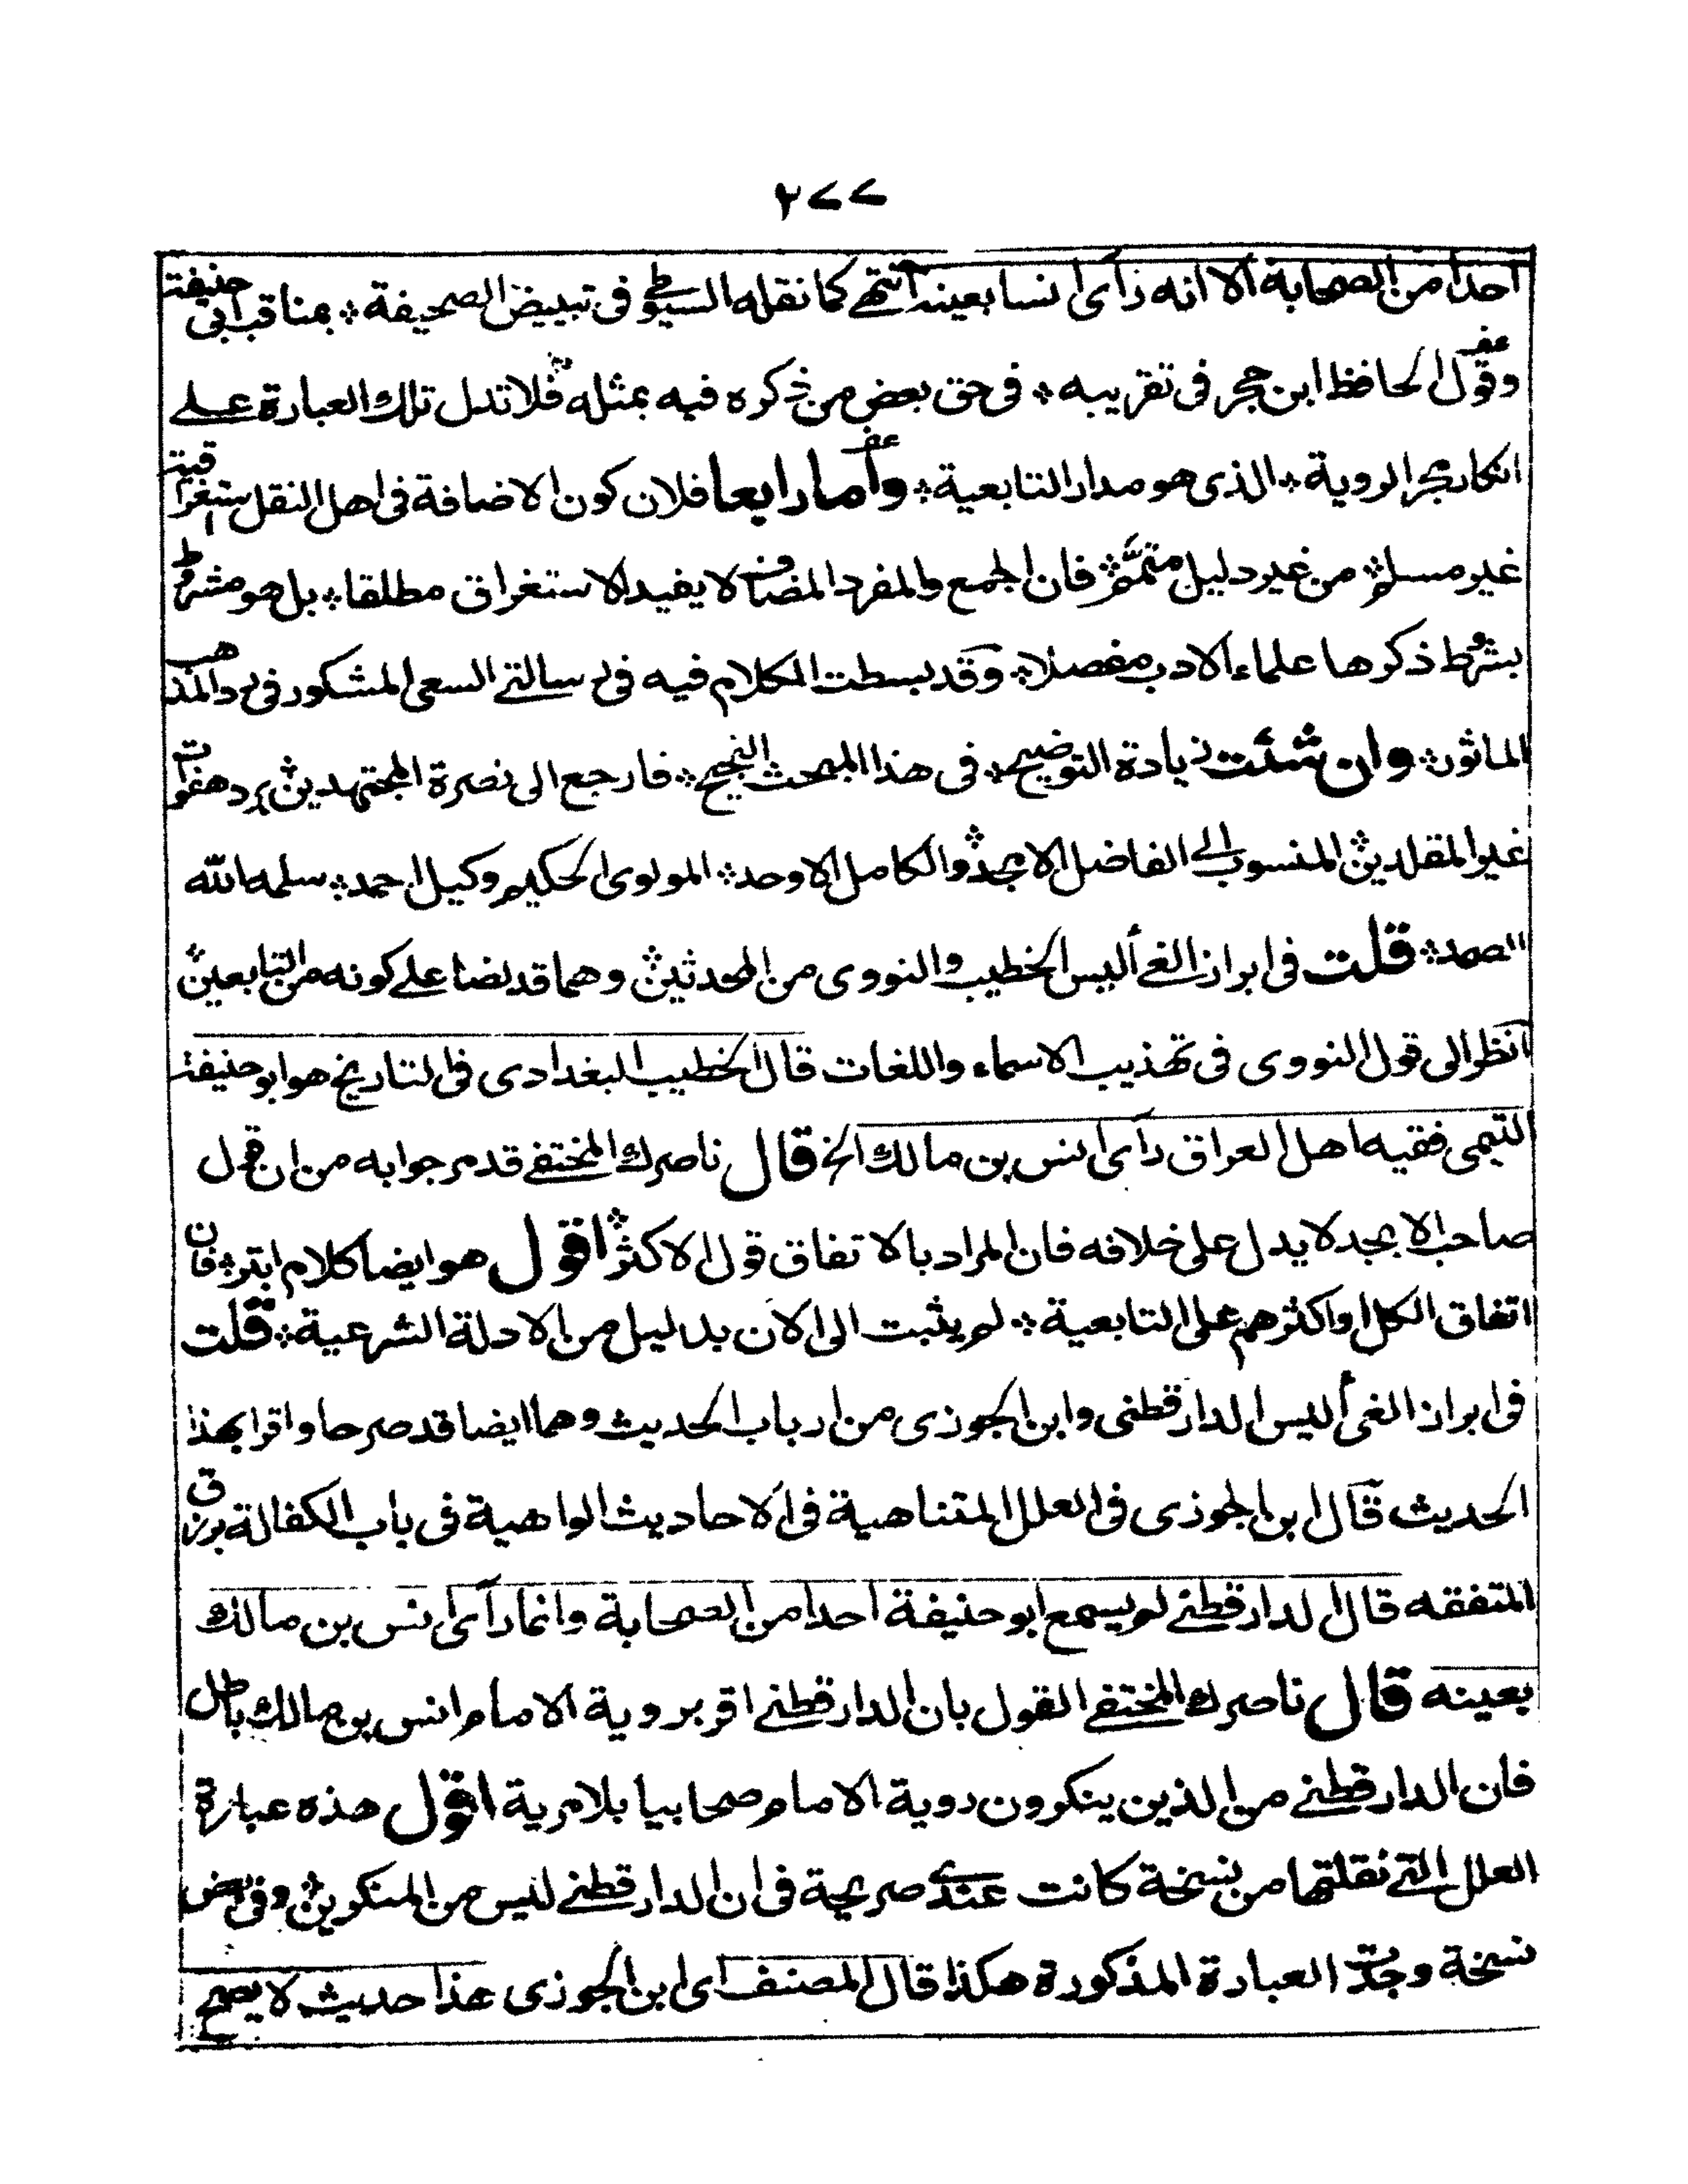 ٢٧٧
احدا من الصحابة الا انه رأى انسا بعينه انتهى كما نقله السيوطي فى تبييض الصحيفة ؞ بمناقب ابى حنيفة
وقول الحافظ ابن حجر فى تقريبه ؞ فى حق بعض من ذكره فيه بمثله ؞ فلا تدل تلك العبارة على
انكار مجرد الروية ؞ الذى هو مدار التابعية ؞ وأما رابعا فلان كون الاضافة فى اهل النقل استغراقية
غير مسلم ؞ من غير دليل متمم ؞ فان الجمع والمفرد المضاف لا يفيد الاستغراق مطلقا ؞ بل هو مشروط
بشروط ذكرها علماء الادب مفصلا ؞ وقد بسطت الكلام فيه فى رسالتى السعى المشكور فى رد المذهب
الماثور ؞ وان شئت زيادة التوضيح ؞ فى هذا المبحث النجيح ؞ فارجع الى نصرة المجتهدين ؞ برد هفوات
غير المقلدين ؞ المنسوب الى الفاضل الامجد ؞ والكامل الاوحد ؞ المولوى الحكيم وكيل احمد ؞ سلمه الله
الصمد ؞ قلت فى ابراز الغى أليس الخطيب والنووى من المحدثين ؞ وهما قد نصا على كونه من التابعين ؞
انظر الى قول النووى فى تهذيب الاسماء واللغات قال الخطيب البغدادى فى التاريخ هو ابو حنيفة
التيمى فقيه اهل العراق رأى انس بن مالك الخ قال ناصرك المختفى قد مر جوابه من ان قول
صاحب الابجد لا يدل على خلافه فان المراد بالاتفاق قول الاكثر ؞ اقول هو ايضا كلام ابتر ؞ فان
اتفاق الكل او اكثرهم على التابعية ؞ لم يثبت الى الان بدليل من الادلة الشرعية ؞ قلت
فى ابراز الغى أليس الدارقطنى وابن الجوزى من ارباب الحديث وهما ايضا قد صرحا واقرا بهذا
الحديث قال ابن الجوزى فى العلل المتناهية فى الاحاديث الواهية فى باب الكفالة برزق
المتفقه قال الدارقطنى لم يسمع ابو حنيفة احدا من الصحابة وانما رأى انس بن مالك
بعينه قال ناصرك المختفى القول بان الدارقطنى اقر بروية الامام انس بن مالك باطل
فان الدارقطنى من الذين ينكرون روية الامام صحابيا بلا مرية اقول هذه عبارة
العلل التى نقلتها من نسخة كانت عندى صريحة فى ان الدارقطنى ليس من المنكرين ؞ وفى بعض
نسخة وجدت العبارة المذكورة هكذا قال المصنف اى ابن الجوزى هذا حديث لا يصح